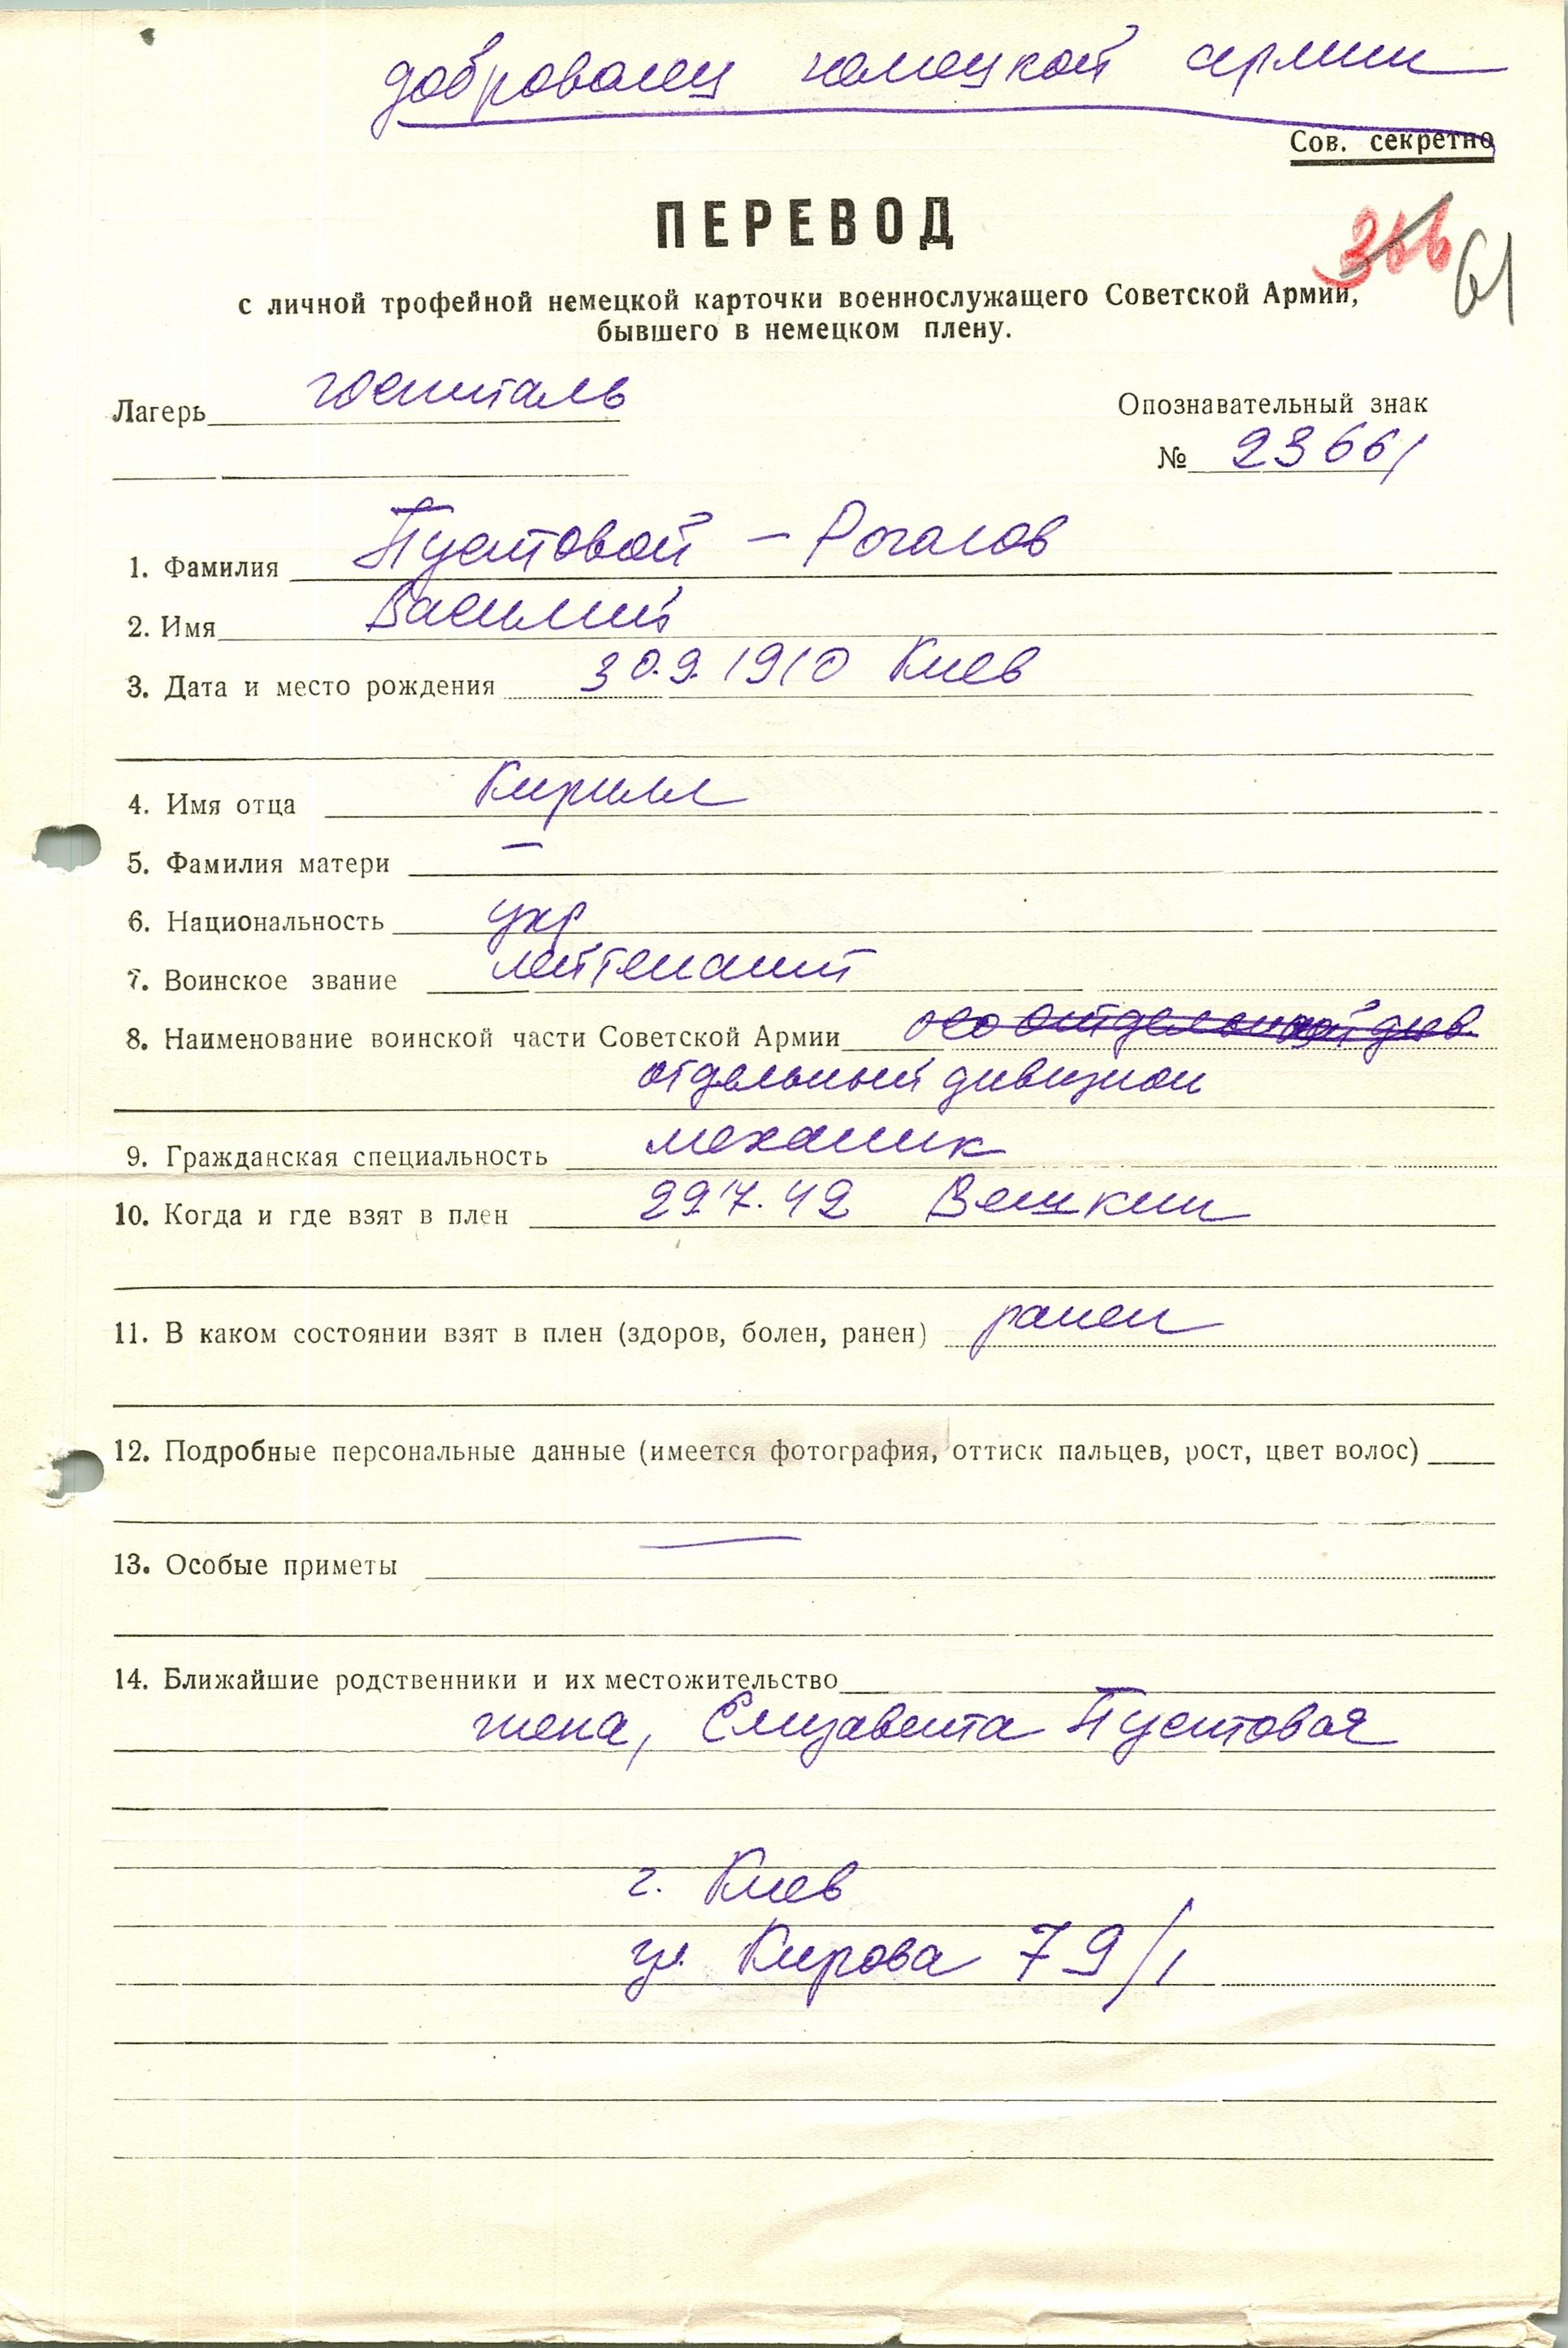 доброволец немецкой армии
Сов. секретно
ПЕРЕВОД
366 61
с личной трофейной немецкой карточки военнослужащего Советской Армии,
бывшего в немецком плену.
Лагерь госпиталь
Опознавательный знак
№ 23661
1. Фамилия Пустовой – Рогалов
2. Имя Василий
3. Дата и место рождения 30.9.1910 Киев
4. Имя отца Кирилл
5. Фамилия матери —
6. Национальность укр
7. Воинское звание лейтенант
8. Наименование воинской части Советской Армии
отдельный дивизион
9. Гражданская специальность механик
10. Когда и где взят в плен 29.7.42 Вешкин
11. В каком состоянии взят в плен (здоров, болен, ранен) ранен
12. Подробные персональные данные (имеется фотография, оттиск пальцев, рост, цвет волос)
13. Особые приметы —
14. Ближайшие родственники и их местожительство
жена, Елизавета Пустовая
г. Киев
ул. Кирова 79/1